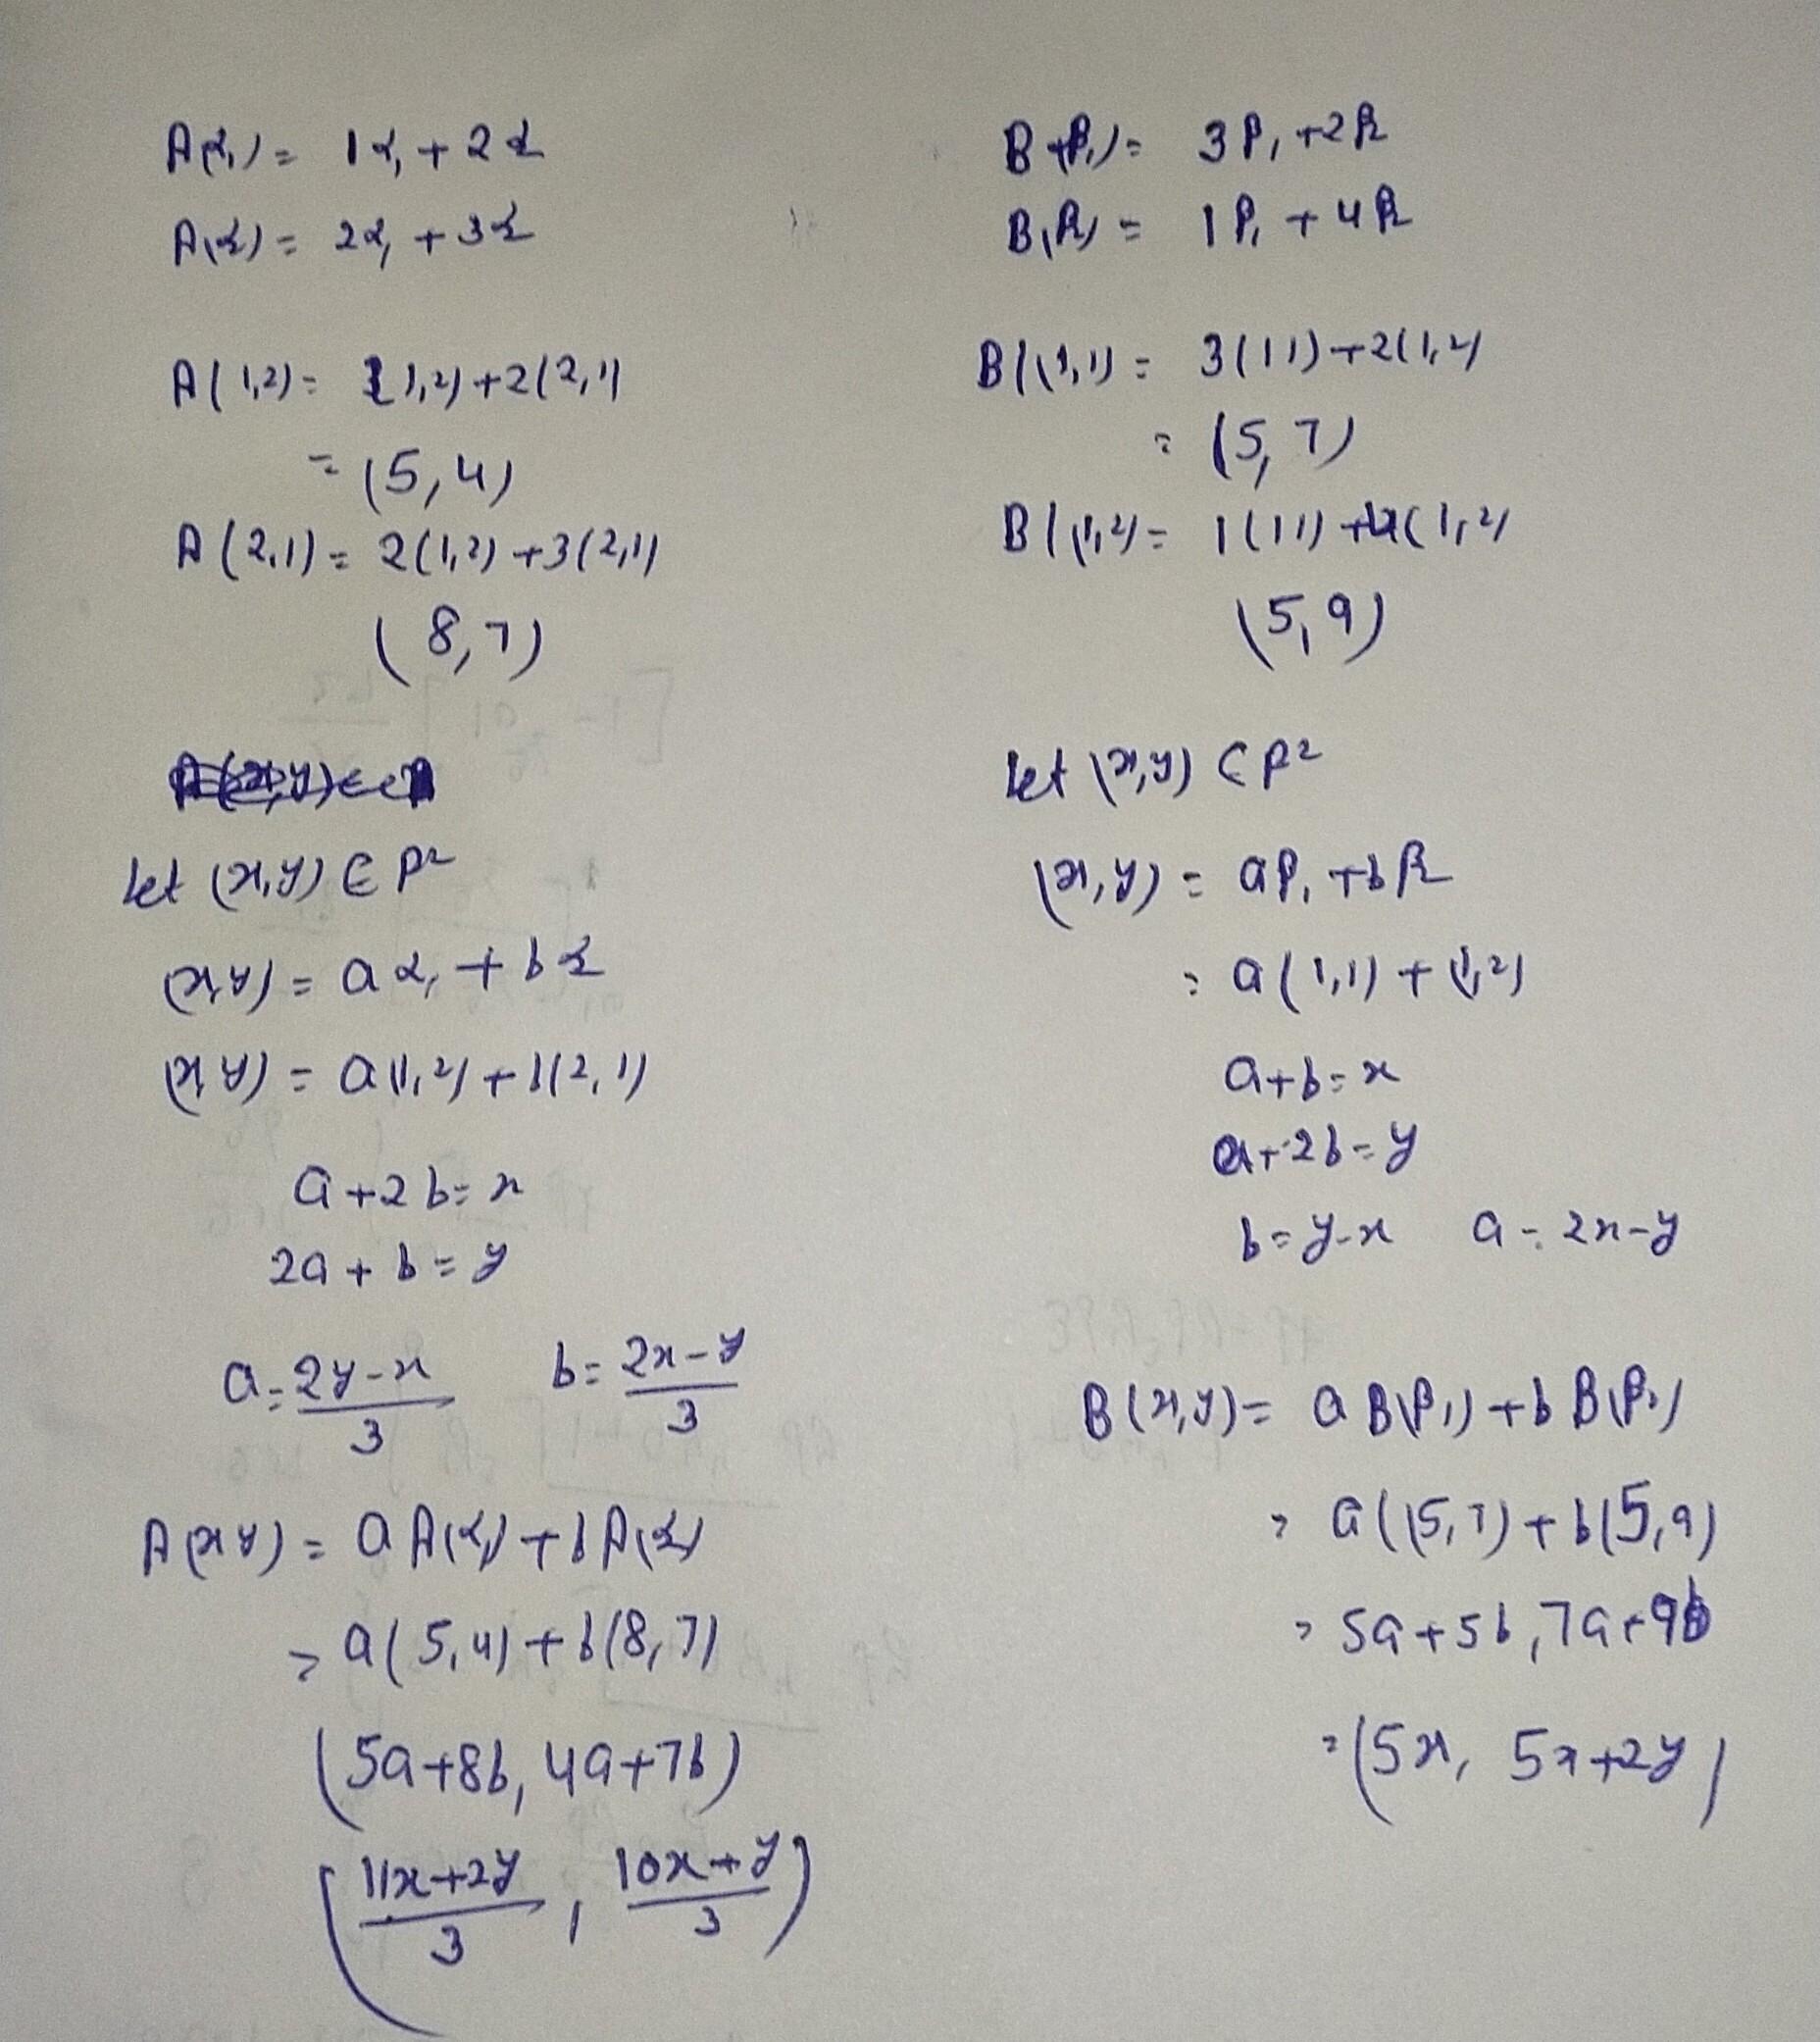 A(α₁) = 1α₁ + 2α₂
A(α₂) = 2α₁ + 3α₂
A(1,2) = 1(1,2)+2(2,1)
= (5,4)
A(2,1) = 2(1,2)+3(2,1)
(8,7)
Let (x,y) ∈ R²
(x,y) = aα₁ + bα₂
(x,y) = a(1,2)+b(2,1)
a+2b=x
2a+b=y
a=2y-x/3 b=2x-y/3
A(x,y) = aA(α₁)+bA(α₂)
= a(5,4)+b(8,7)
(5a+8b, 4a+7b)
(11x+2y/3, 10x+y/3)
B(β₁) = 3β₁+2β₂
B(β₂) = 1β₁+4β₂
B((1,1) = 3(1 1)+2(1,2)
= (5,7)
B((1,2) = 1(1 1)+4(1,2)
(5,9)
Let (x,y) ∈ R²
(x,y) = aβ₁+bβ₂
= a(1,1)+(1,2)
a+b=x
a+2b=y
b=y-x a=2x-y
B(x,y) = aB(β₁)+bB(β₂)
= a((5,7)+b(5,9)
= 5a+5b,7a+9b
= (5x, 5x+2y)